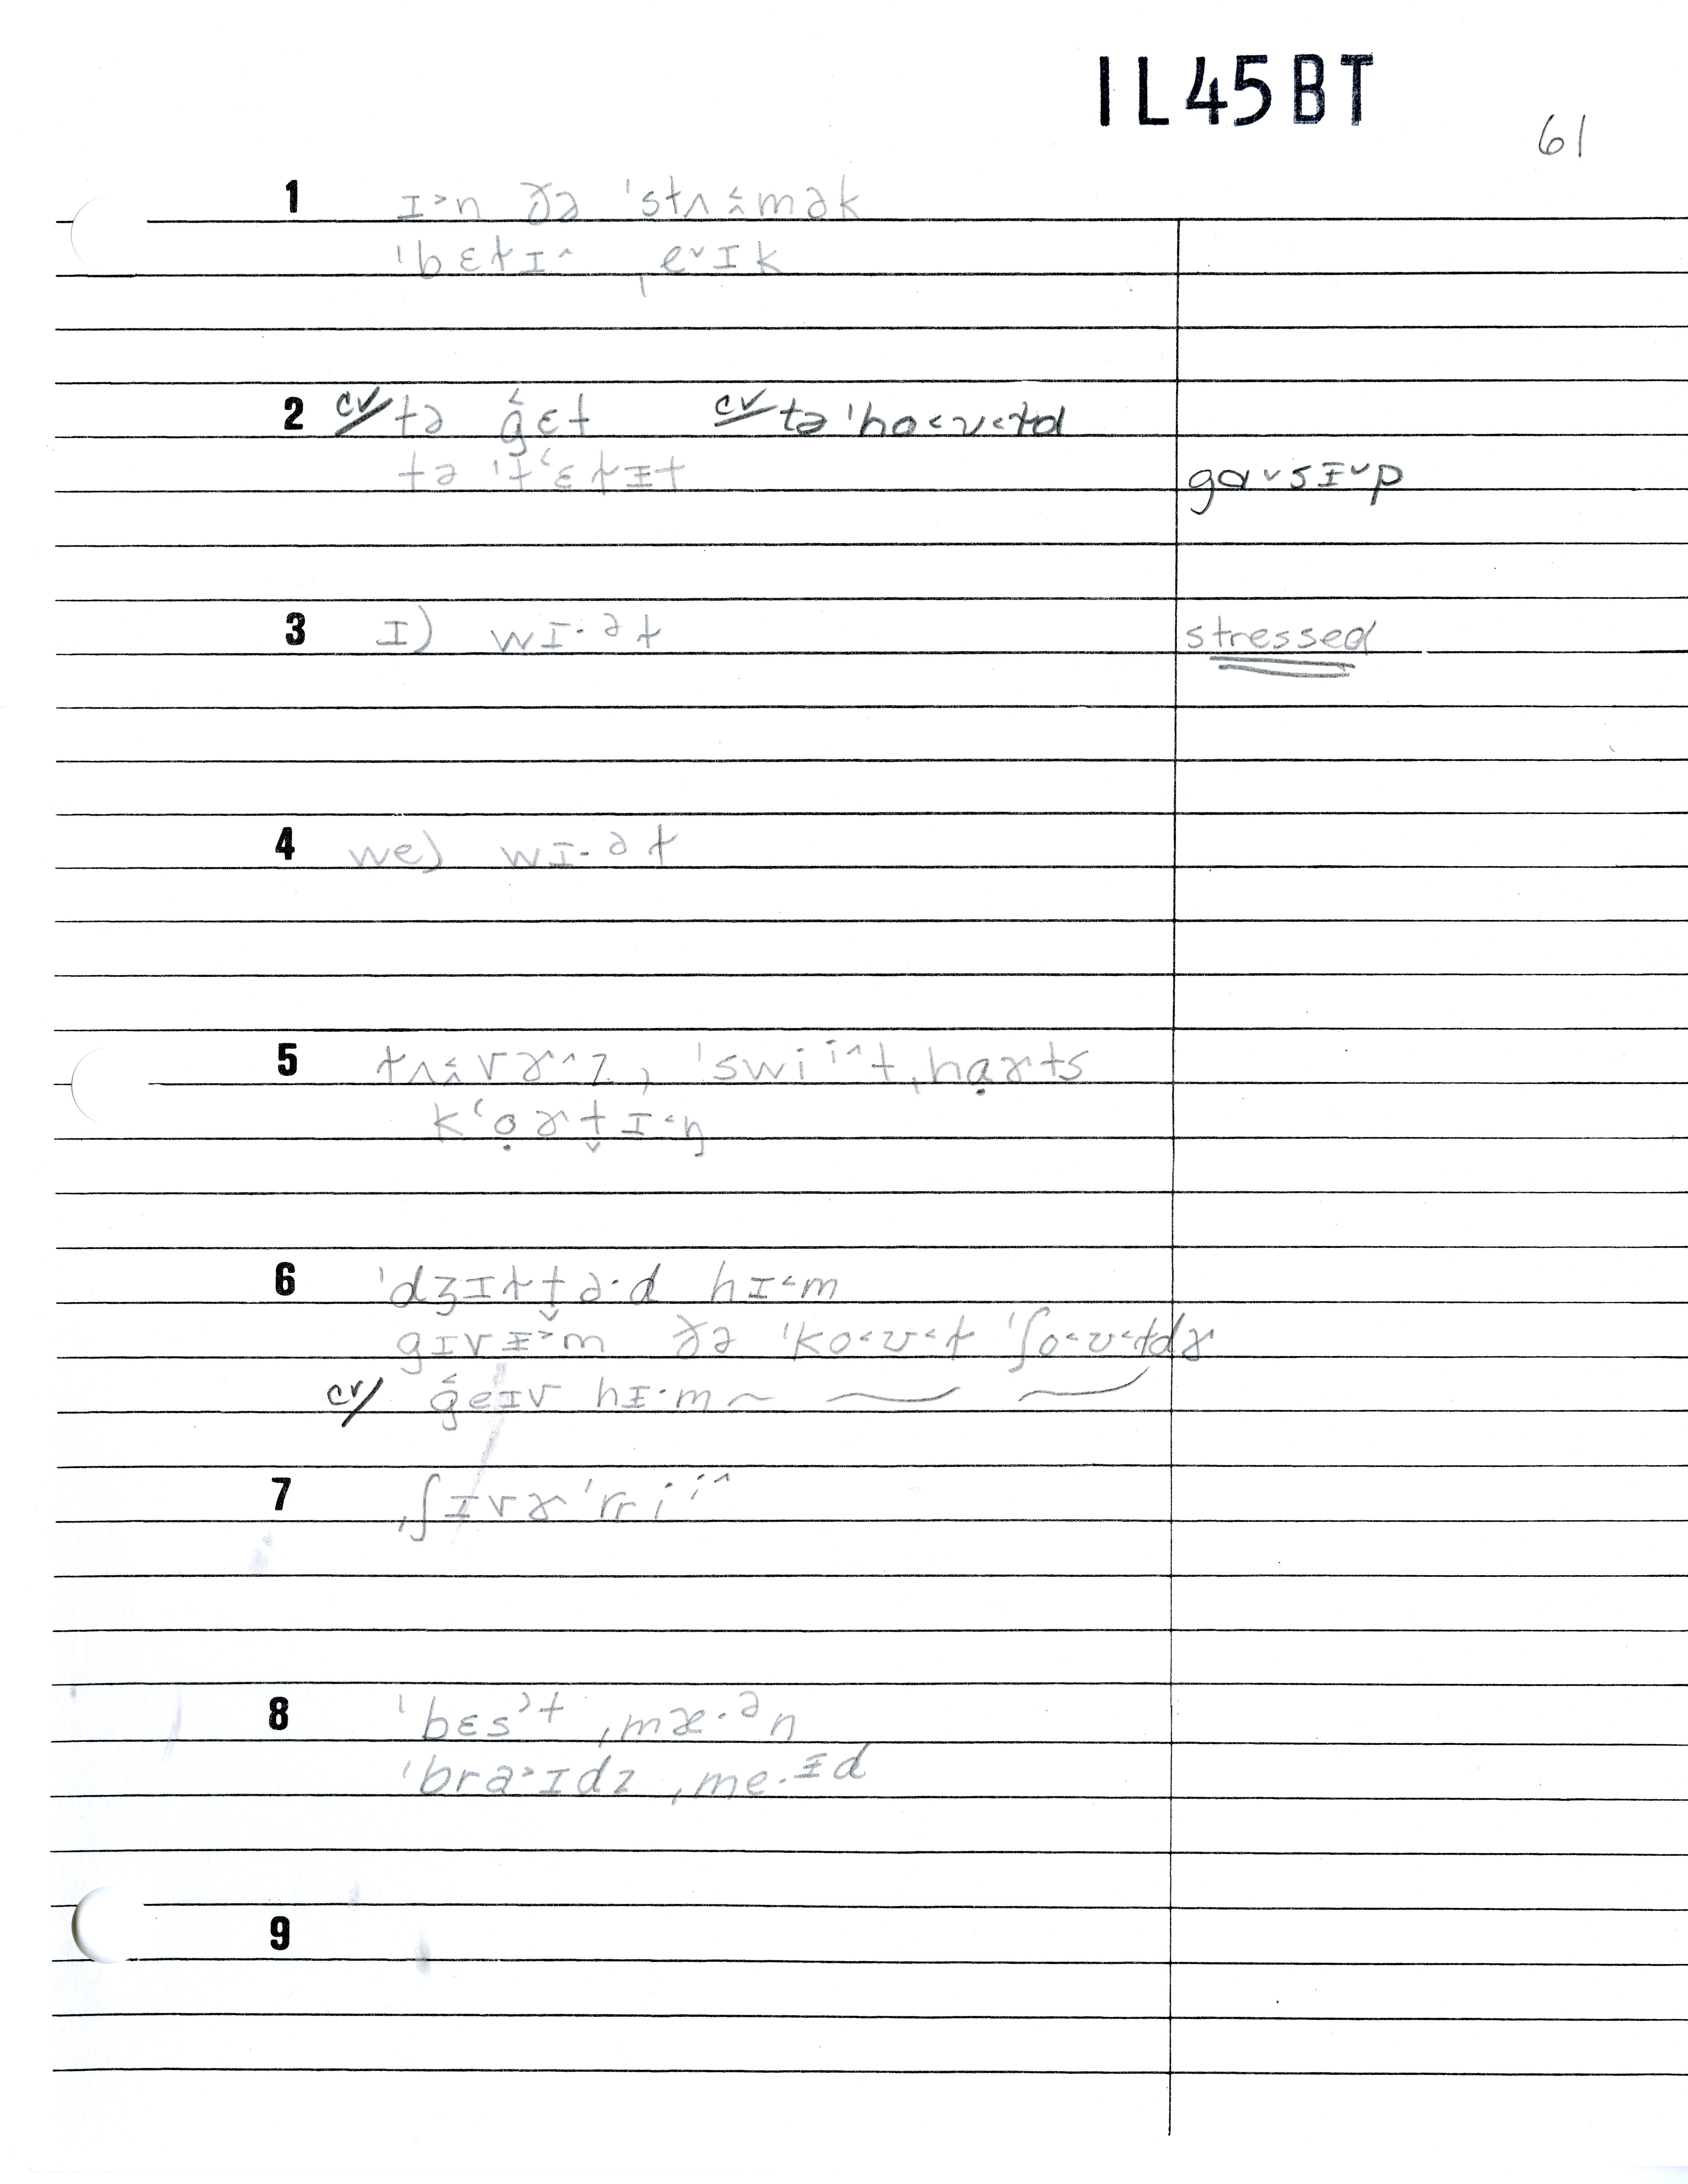 IL45BT
61
1 ɪ˃n ðə ˈstʌ ʌ̭̂mək
ˈbɛɫɪ˄ ˌe˅ɪk
2 cv/ tə g̑ɛt cv/ tə ˈho˂ʊ˂ɫd
tə ˈtʻɛɫɪt gɑ˅sɪ˅p
3 I) wɪ·ᵊɫ stressed
4 we) wɪ·ᵊɫ
5 tʌ̭̂vɚ˄z, ˈswiⁱ˄tˌhɑ̣ɚts
kʻọɚt̬ɪ˂ŋ
6 ˈdʒɪɫt̬ə·d hɪ˂m
gɪvɪ˃m ðə ˈko˂ʊ˂ɫ ˈʃo˂ʊ˂ɫdɚ
cv/ g̑eɪv hɪ·m ~
7 ˌʃɪvɚˈriⁱ˄
8 ˈbɛs˃t ˌmæ·ᵊn
ˈbra˃ɪdz ˌme·ɪd
9